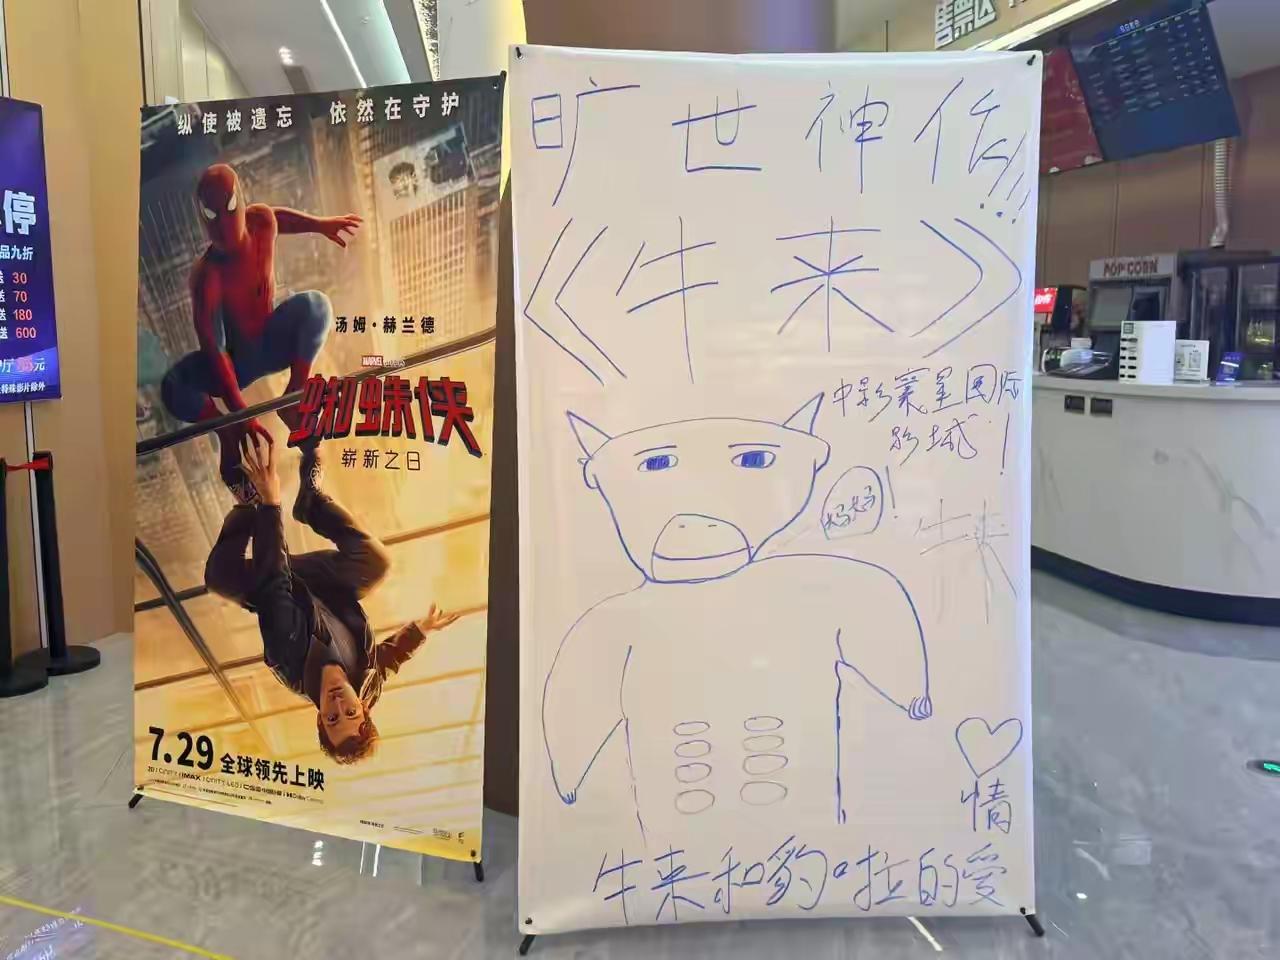 纵使被遗忘 依然在守护
汤姆·赫兰德
MARVEL STUDIOS
蜘蛛侠
崭新之日
7.29 全球领先上映
旷世神作!!!
《牛来》
中影寰星国际
影城!
妈妈!
牛来
情
牛来和豹啦的爱
停
品九折
送 30
送 70
送 180
送 600
特殊影片除外
售票区
POPCORN